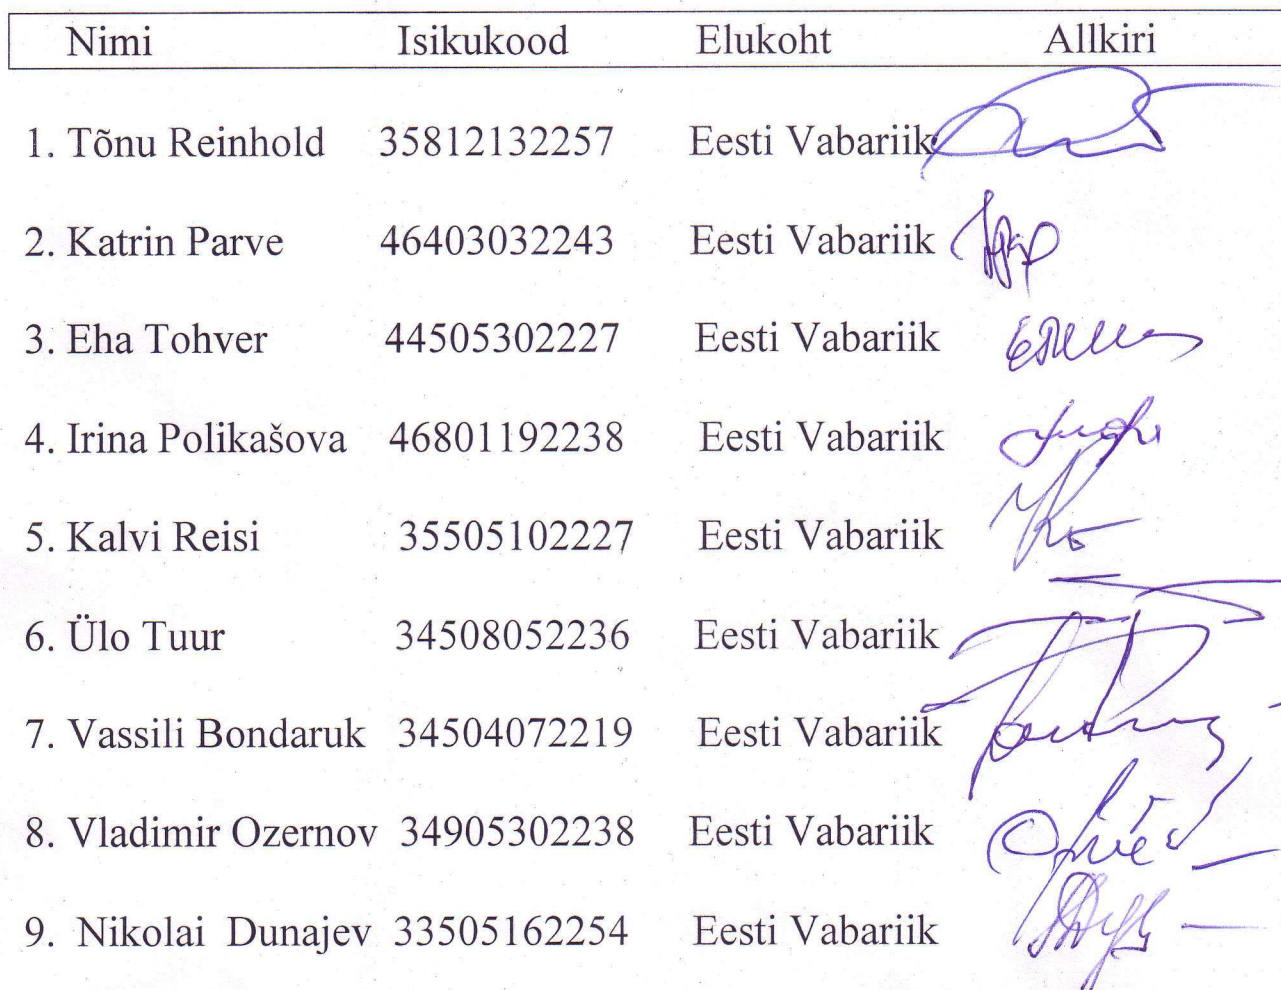 Nimi Isikukood Elukoht Allkiri
1. Tõnu Reinhold 35812132257 Eesti Vabariik
2. Katrin Parve 46403032243 Eesti Vabariik
3. Eha Tohver 44505302227 Eesti Vabariik
4. Irina Polikašova 46801192238 Eesti Vabariik
5. Kalvi Reisi 35505102227 Eesti Vabariik
6. Ülo Tuur 34508052236 Eesti Vabariik
7. Vassili Bondaruk 34504072219 Eesti Vabariik
8. Vladimir Ozernov 34905302238 Eesti Vabariik
9. Nikolai Dunajev 33505162254 Eesti Vabariik